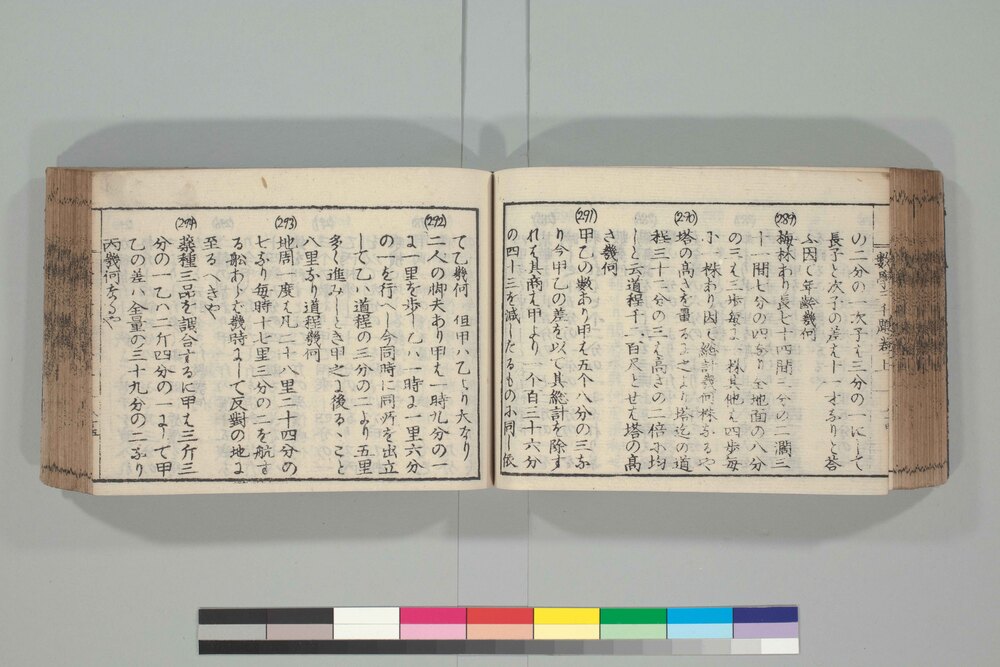 の二分の一次子ゝ三分の一にして
長子と次子の差ゝ十一才なりと答
ふ因て年齢幾何
(289)
梅林わり長七十四間二分の二濶三
十一間七分の四なり全地面の八分
の三ゝ三歩毎に一株其他ゝ四歩毎
に一株あり因て総計幾何株なるや
(290)
塔の高さを量るに之より塔迄の道
程三十二分の三ゝ高さの二倍に均
しと云道程千二百尺とせゝ塔の高
さ幾何
(291)
甲乙の数あり甲ゝ五个八分の三な
り今甲乙の差を以て其総計を除す
れゝ其商ゝ甲より一个百三十六分
の四十三を減したるものに同し依
て乙幾何 但甲ハ乙より大なり
(292)
二人の脚夫あり甲ゝ一時九分の一
に一里を歩し乙ハ一時に一里六分
の一を行へし今同時に同所を出立
して乙ハ道程の三分の二より五里
多く進みしとき甲之に後るゝこと
八里なり道程幾何
(293)
地周一度ゝ凡二十八里二十四分の
七なり毎時十七里三分の二を航す
る船あらハ幾時にして反對の地に
至るへきや
(294)
藥種三品を調合するに甲ゝ三斤三
分の一乙ハ二斤四分の一にて甲
乙の差ハ全量の三十九分の二なり
丙幾何なるや